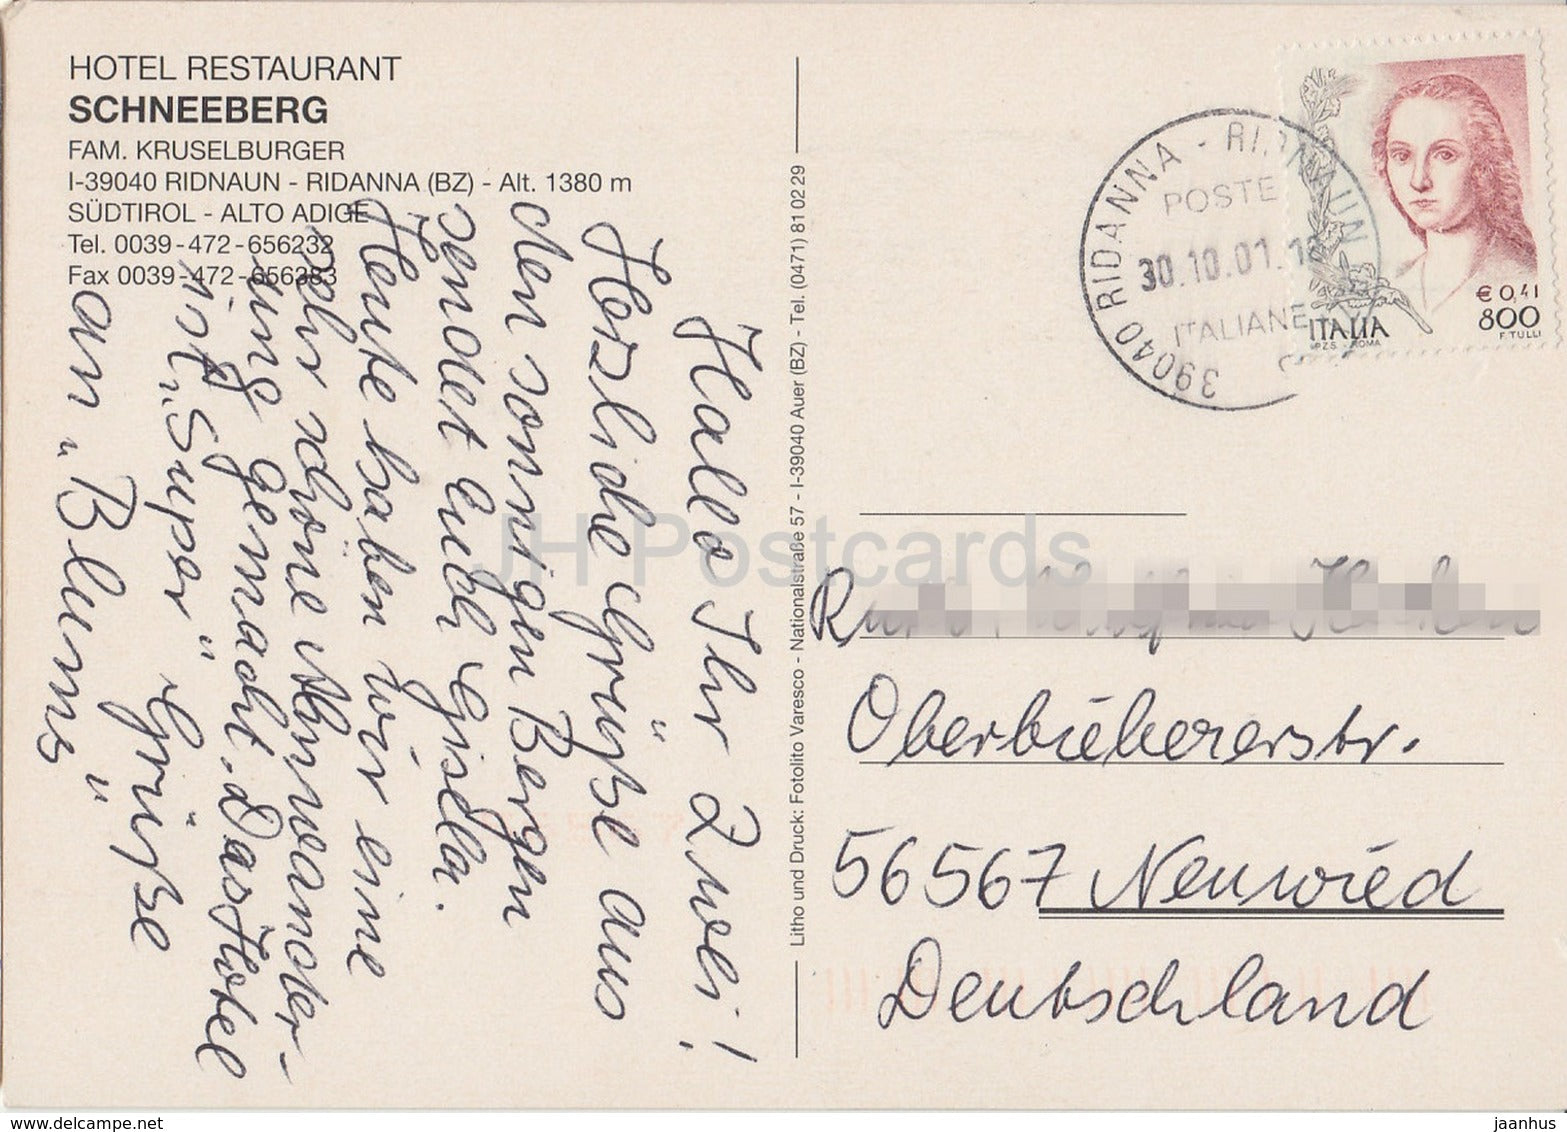 HOTEL RESTAURANT
SCHNEEBERG
FAM. KRUSELBURGER
I-39040 RIDNAUN - RIDANNA (BZ) - Alt. 1380 m
SÜDTIROL - ALTO ADIGE
Tel. 0039-472-656232
Fax 0039-472-656383
Hallo Ihr 2 !
Herzliche Grüße aus
den sonnigen Bergen
sendet Euch Gisela.
Heute haben wir eine
sehr schöne
ung gemacht. Das Hotel
ist „Super" Grüße
an „Blums"
Litho und Druck: Fotolito Varesco - Nationalstraße 57 - I-39040 Auer (BZ) - Tel. (0471) 81 02 29
39040 RIDANNA - RIDNAUN
POSTE
30.10.01.18
ITALIANE
ITALIA
I.P.Z.S. - ROMA
€ 0,41
800
F. TULLI
Oberbiebererstr.
56567 Neuwied
Deutschland
JH Postcards
www.delcampe.net
jaanhus